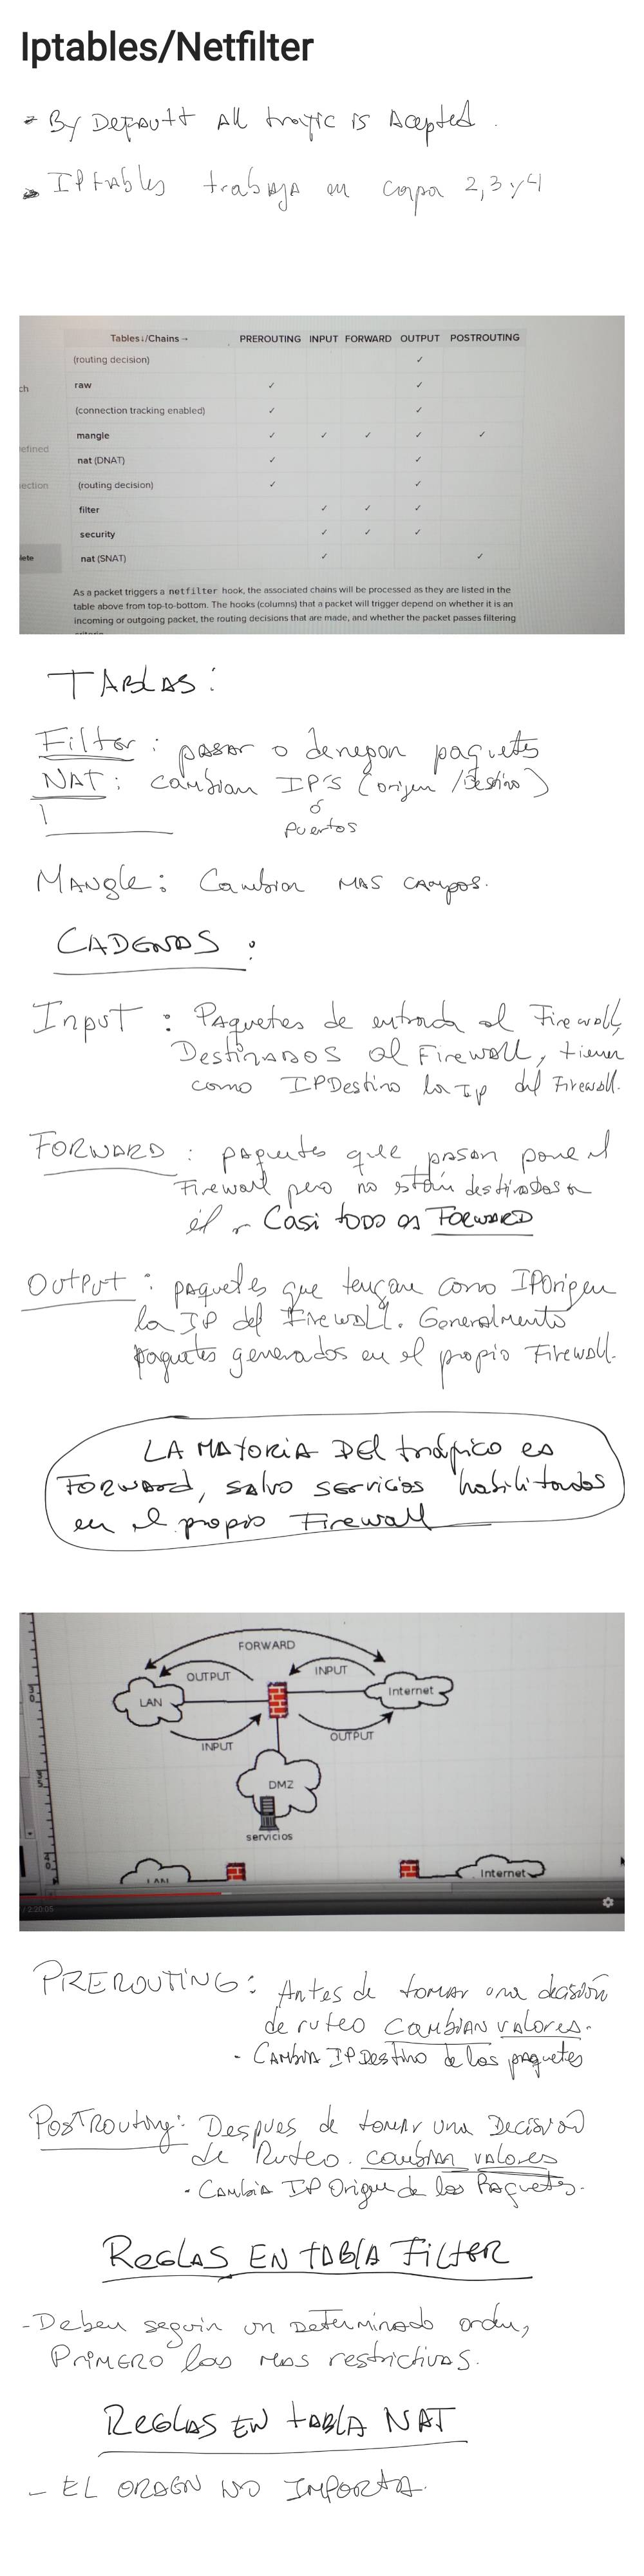 Iptables/Netfilter
- By Defautt All trafic is Acepted.
- IPtables trabaja en capa 2,3 y 4
Tables↓/Chains→ PREROUTING INPUT FORWARD OUTPUT POSTROUTING
(routing decision) ✓
ch
raw ✓ ✓
(connection tracking enabled) ✓ ✓
mangle ✓ ✓ ✓ ✓ ✓
efined
nat (DNAT) ✓ ✓
ection
(routing decision) ✓ ✓
filter ✓ ✓ ✓
security ✓ ✓ ✓
lete
nat (SNAT) ✓ ✓
As a packet triggers a netfilter hook, the associated chains will be processed as they are listed in the
table above from top-to-bottom. The hooks (columns) that a packet will trigger depend on whether it is an
incoming or outgoing packet, the routing decisions that are made, and whether the packet passes filtering
TABLAS:
Filter: pasar o denegar paquetes
NAT: cambian IP'S (origen /Destino)
ó
Puertos
MANgle: Cambian MAS CAMpos.
CADENAS:
Input: PAquetes de entrada al Firewall,
DestinADOS al Firewall, tienen
como IPDestino la Ip del Firewall.
FORWARD: paquetes que pasan por el
Firewall pero no están destinados a
él Casi todo es FORWARD
Output: paquetes que tengan como IPOrigen
la IP del Firewall. Generalmente
paquetes generados en el propio Firewall.
LA MAYORIA DEl tráfico es
Forward, salvo servicios habilitados
en el propio Firewall
FORWARD
OUTPUT
INPUT
LAN
Internet
INPUT
OUTPUT
DMZ
servicios
LAN
Internet
/ 2:20:05
PREROUTING: Antes de tomar una decisión
de ruteo CAMBIAN VALORES.
- CAMBIA IP DEStino de los paquetes
PostRouting: Despues de tomar una Decisión
de Ruteo. cambian valores
- CAMbiA IP Origen de los Paquetes.
REGLAS EN tABlA FilteR
- Deben seguir un Determinado orden,
PRIMERO las mas restrictivas.
REGLAS EN tABLA NAT
- EL ORDEN NO IMPORTA.